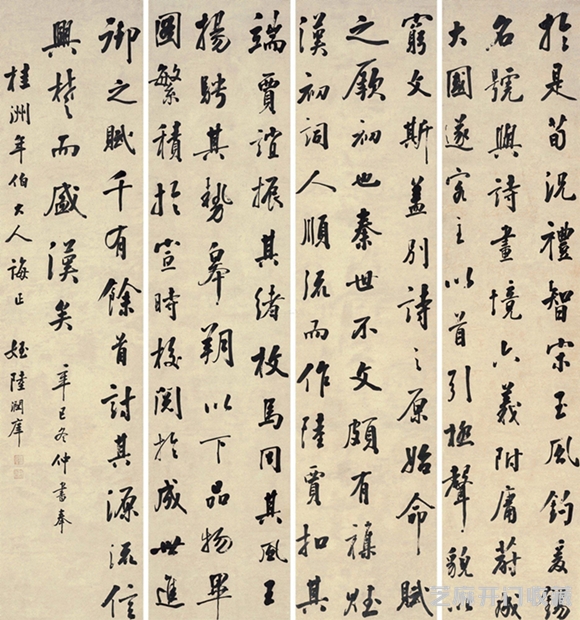 於是荀況禮智宋玉風鈞爰錫
名號與詩畫境六義附庸蔚成
大國遂客主以首引極聲貌以
窮文斯蓋別詩之原始命賦
之厥初也秦世不文頗有襍賦
漢初詞人順流而作陸賈扣其
端賈誼振其緒枚馬同其風王
揚騁其勢皋朔以下品物畢
圖繁積於宣時校閱於成世進
御之賦千有餘首討其源流信
興楚而盛漢矣 辛巳冬仲書奉
桂洲年伯大人誨正 姪陸潤庠